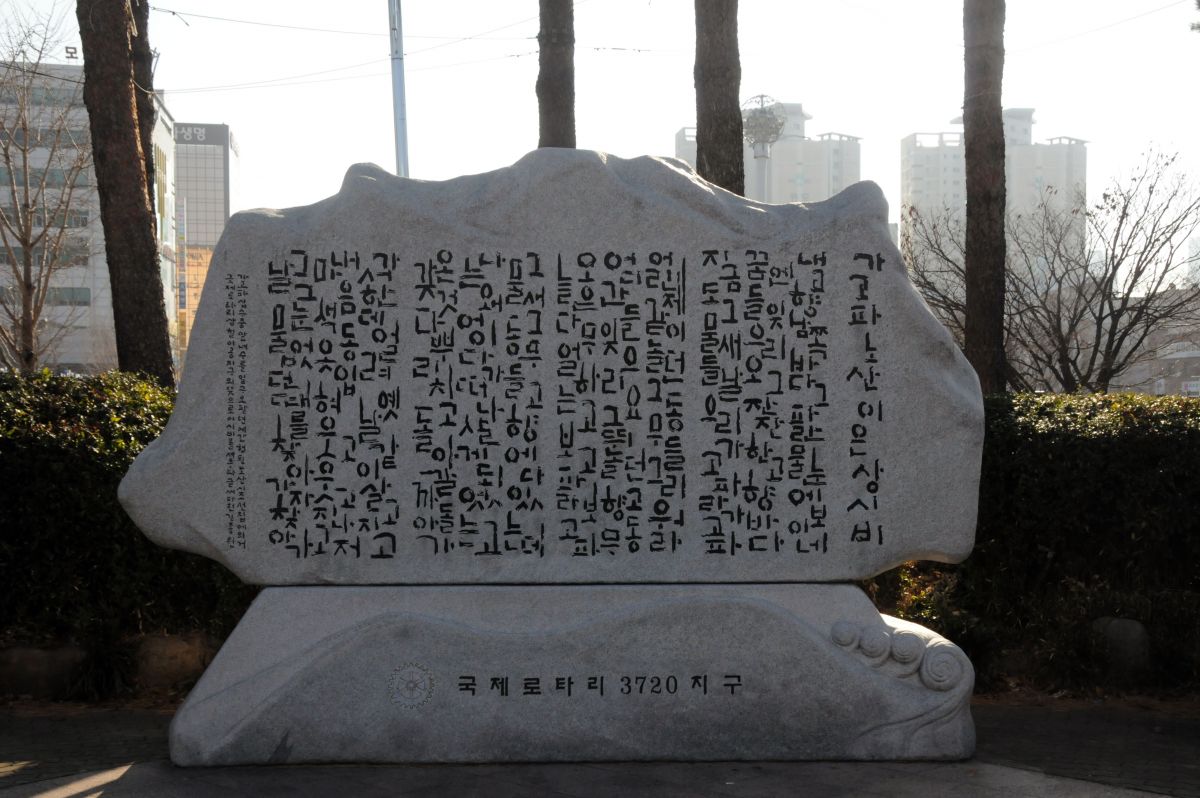 가고파 노산 이은상 시비
내 고향 남쪽 바다 그 파란 물 눈에 보이네
꿈엔들 잊으리오 그 잔잔한 고향 바다
지금도 그 물새들 날으리 가고파라 가고파
어릴제 같이 놀던 그 동무들 그리워라
어디간들 잊으리요 그 뛰놀던 고향 동무
오늘은 다 무얼 하는고 보고파라 보고파
그 물새 그 동무들 고향에 다 있는데
나는 왜 어이타가 떠나 살게 되었는고
온갖것 다 뿌리치고 돌아갈까 돌아가
가서 한데 얼려 옛날같이 살고지고
내 마음 색동옷 입혀 웃고 웃고 지나고저
그날 그 눈물 없던 때를 찾아가자 찾아가
국제로타리 3720 지구
생명